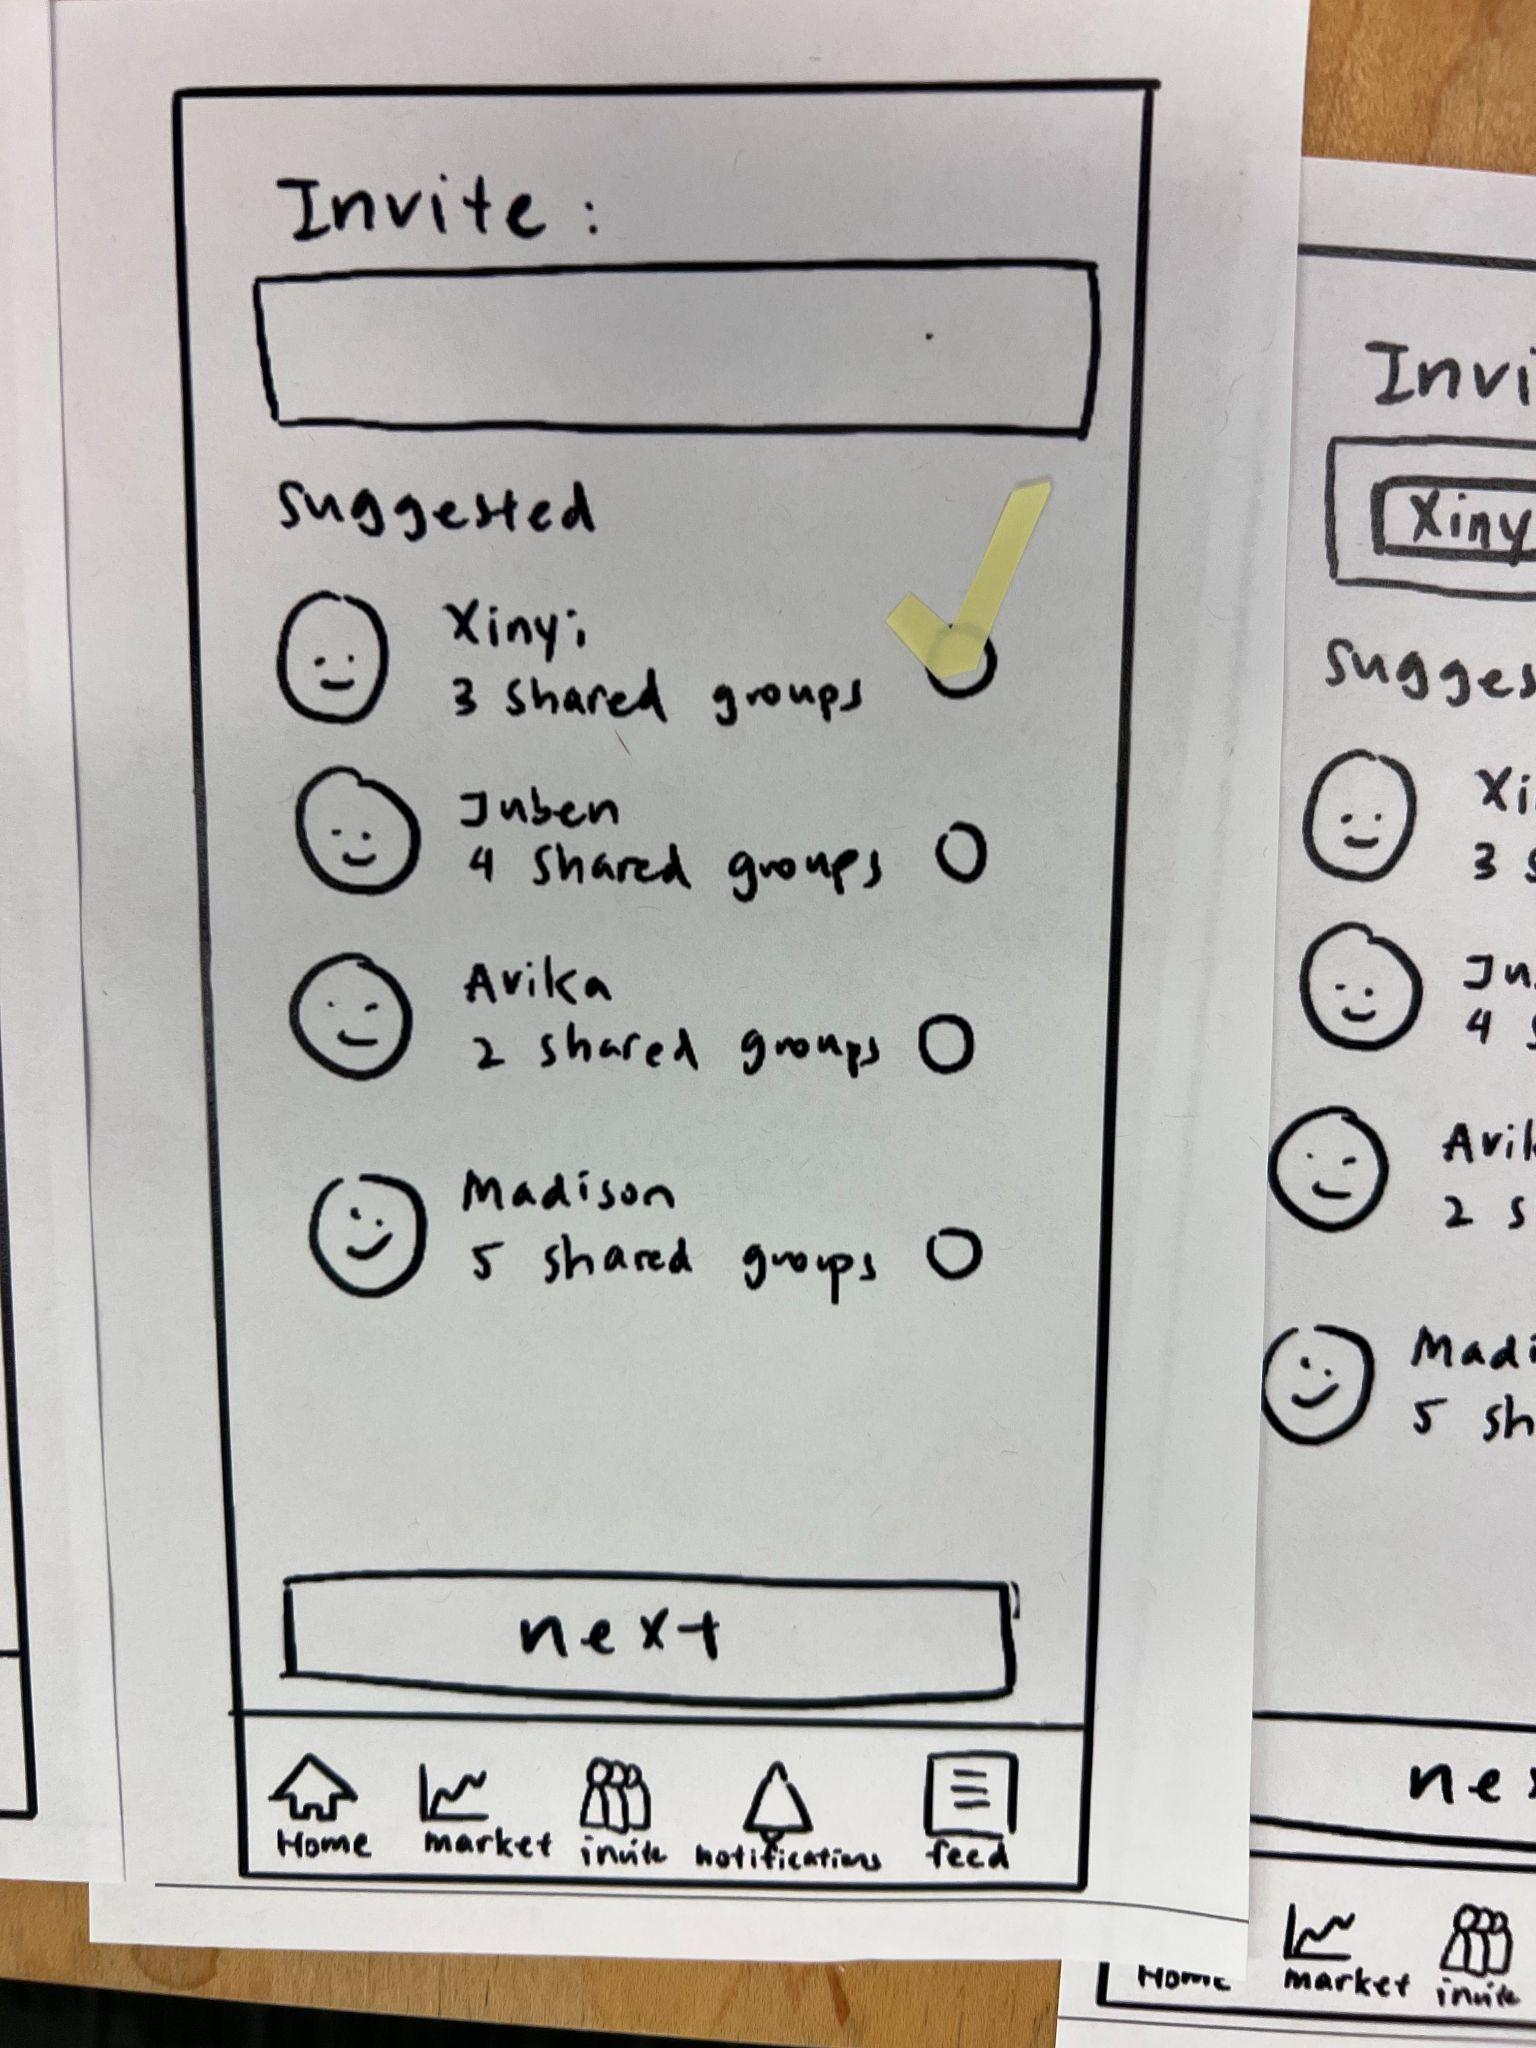 Invite :
suggested
Xinyi
3 shared groups
Juben
4 shared groups
Avika
2 shared groups
Madison
5 shared groups
next
Home market invite notifications feed
Invi
Xiny
sugges
Xi
3 s
Ju
4 s
Avik
2 s
Madi
5 sh
nex
Home market invite